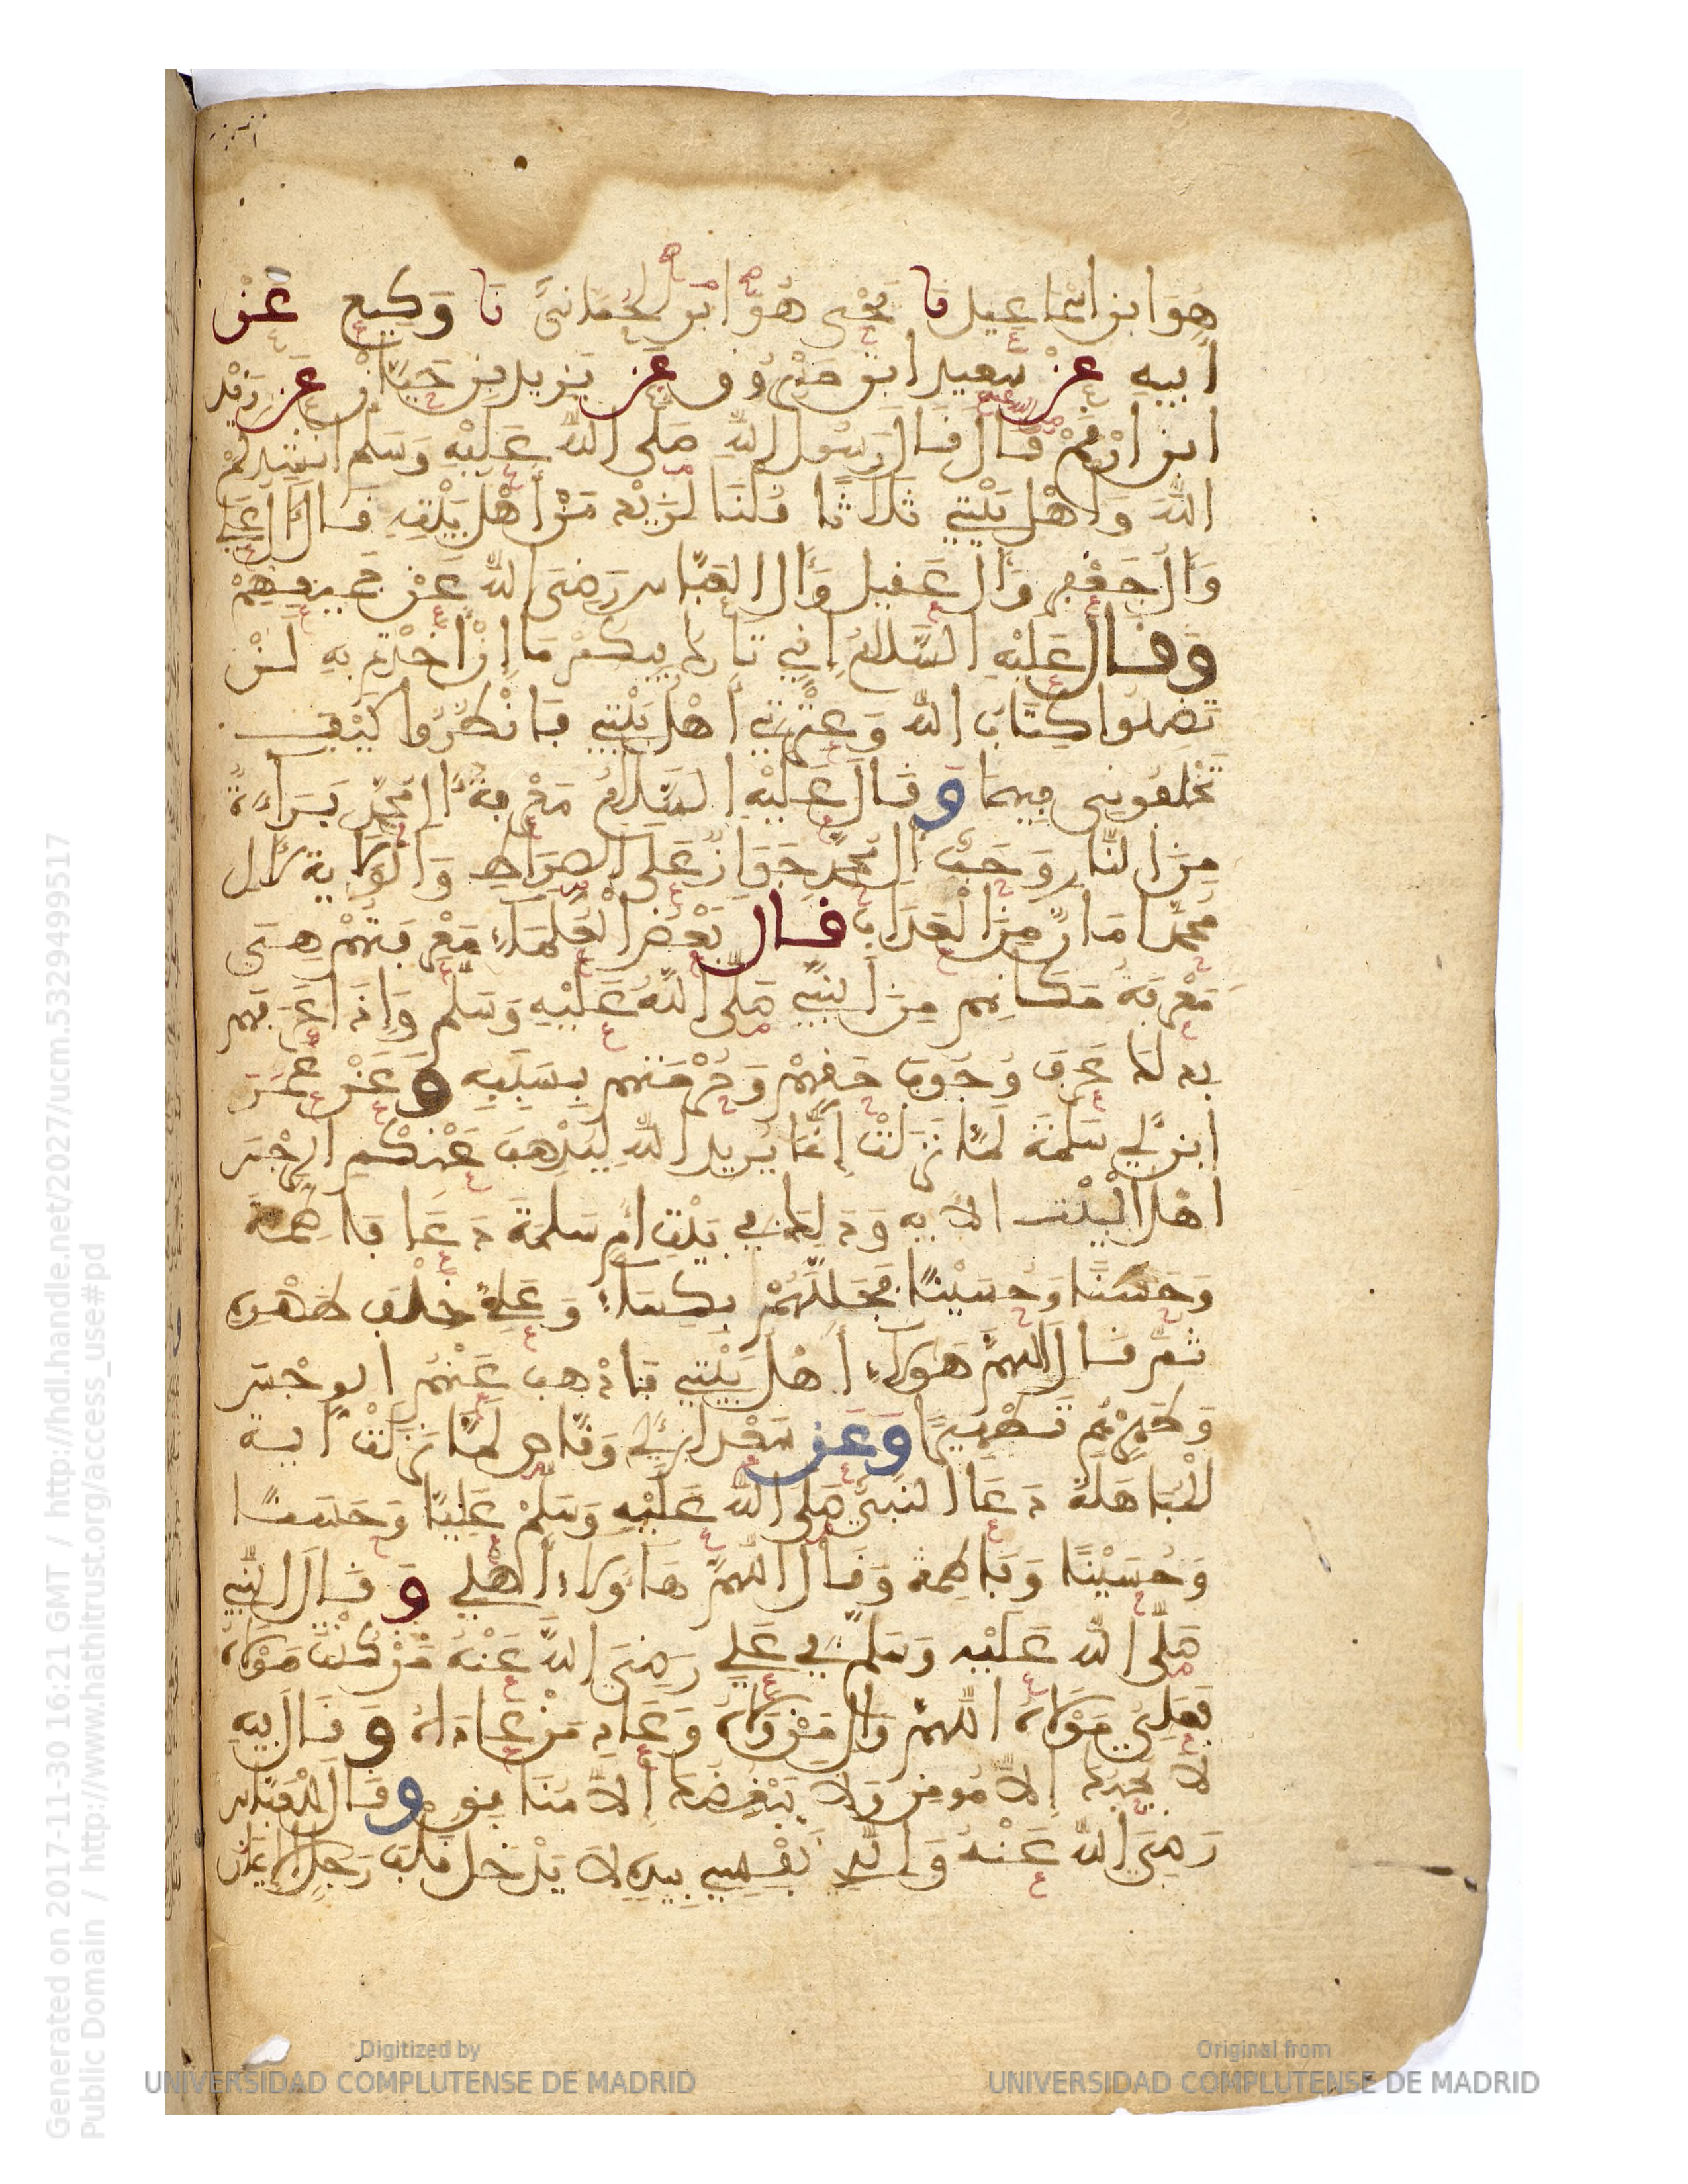 هُوَ ابن اسْماعيل نا يحيى هُوَ ابن الحِمّانيّ نا وَكيع عَنْ
أبيهِ عنْ سَعيد ابن مَسْرُوق عَن يَزيد بن حَيَّان عَن زَيْد
ابن ارْقَمْ قال قالَ رَسُول اللهِ صَلى اللهُ عَليْهِ وَسَلم انشِدكمْ
اللهَ وَأَهْل بَيْتِي ثلاثا قُلنَا لزيْد مَنْ أَهْل بَيْتِهِ قال آل عَلي
وَآل جَعْفر وَآل عَقيل وَآل العَبَّاس رَضِيَ اللهُ عَنْ جَميعِهِمْ
وَقالَ عَليْهِ السَّلامُ إني تارِك فيكمْ مَا إنْ أخذتم بِهِ لَنْ
تَضِلوا كِتَابَ الله وَعِتْرَتي أَهْل بَيْتِي فانْظُرُوا كَيْفَ
تَخْلفوني فيهمَا وَقالَ عَليْهِ السَّلامُ مَعْرفَةُ آل محمّد بَرَاءةٌ
مِنَ النَّار وَحُبُّ آل محمّد جَوَازٌ عَلى الصِّرَاطِ وَالوَلايَة لآل
محمّد أمَانٌ مِنَ الْعَذَاب قال بَعْضُ الْعُلمَاء مَعْرفتهُمْ هِيَ
مَعْرفَة مَكانهم مِنَ النبيّ صَلى اللهُ عَليْهِ وَسَلم وَإذا عَرَفهم
بذلك عَرَفَ وُجُوبَ حَقهمْ وَحُرْمَتهم بِسَبَبِهِ وَعَنْ عُمَرَ
ابن أبي سَلمَة لمَّا نَزَلَتْ إنَّمَا يُريد اللهُ ليُذْهِبَ عَنْكُم الرِّجْسَ
اهْلَ الْبَيْت الآية وَذلك في بَيْتِ أم سَلمَةَ دَعَا فاطِمَة
وَحَسَنًا وَحُسَيْنًا فجَلَّلَهُمْ بِكِساء وَعَليٌّ خَلْفَ ظَهْره
ثمَّ قال اللهمَّ هَؤلاء أهْل بَيْتي فاذْهِب عَنْهُم الرِّجْسَ
وَطَهِّرْهُم تَطْهِيرًا وَعَن سَعْد ابن أبي وَقّاص لمَّا نَزَلَتْ آية
المُبَاهَلة دَعَا النبيّ صَلى اللهُ عَليْهِ وَسَلمْ عَلِيًّا وَحَسَنًا
وَحُسَيْنًا وَفاطِمَة وَقال اللهُمَّ هَاؤلاء أهْلي وَقالَ النّبيّ
صَلّى اللهُ عَليْه وَسَلم في عَلي رَضِيَ اللهُ عَنْهُ مَنْ كُنْتُ مَوْلاهُ
فعَلِيّ مَوْلاهُ اللهُمَّ وَالِ مَنْ وَالاهُ وَعَادِ مَنْ عَادَاهُ وَقالَ فيهِ
لا يُحِبُّكَ إلاّ مُومِن وَلا يَبْغُضُكَ إلاّ مُنَافِق وَقالَ للعَبّاس
رَضِيَ اللهُ عَنْهُ وَالّذِي نَفْسِي بِيَدِهِ لا يَدْخل قَلْبَ رَجُلٍ الإيمَانُ
Generated on 2017-11-30 16:21 GMT / http://hdl.handle.net/2027/ucm.5329499517
Public Domain / http://www.hathitrust.org/access_use#pd
Digitized by
UNIVERSIDAD COMPLUTENSE DE MADRID
Original from
UNIVERSIDAD COMPLUTENSE DE MADRID